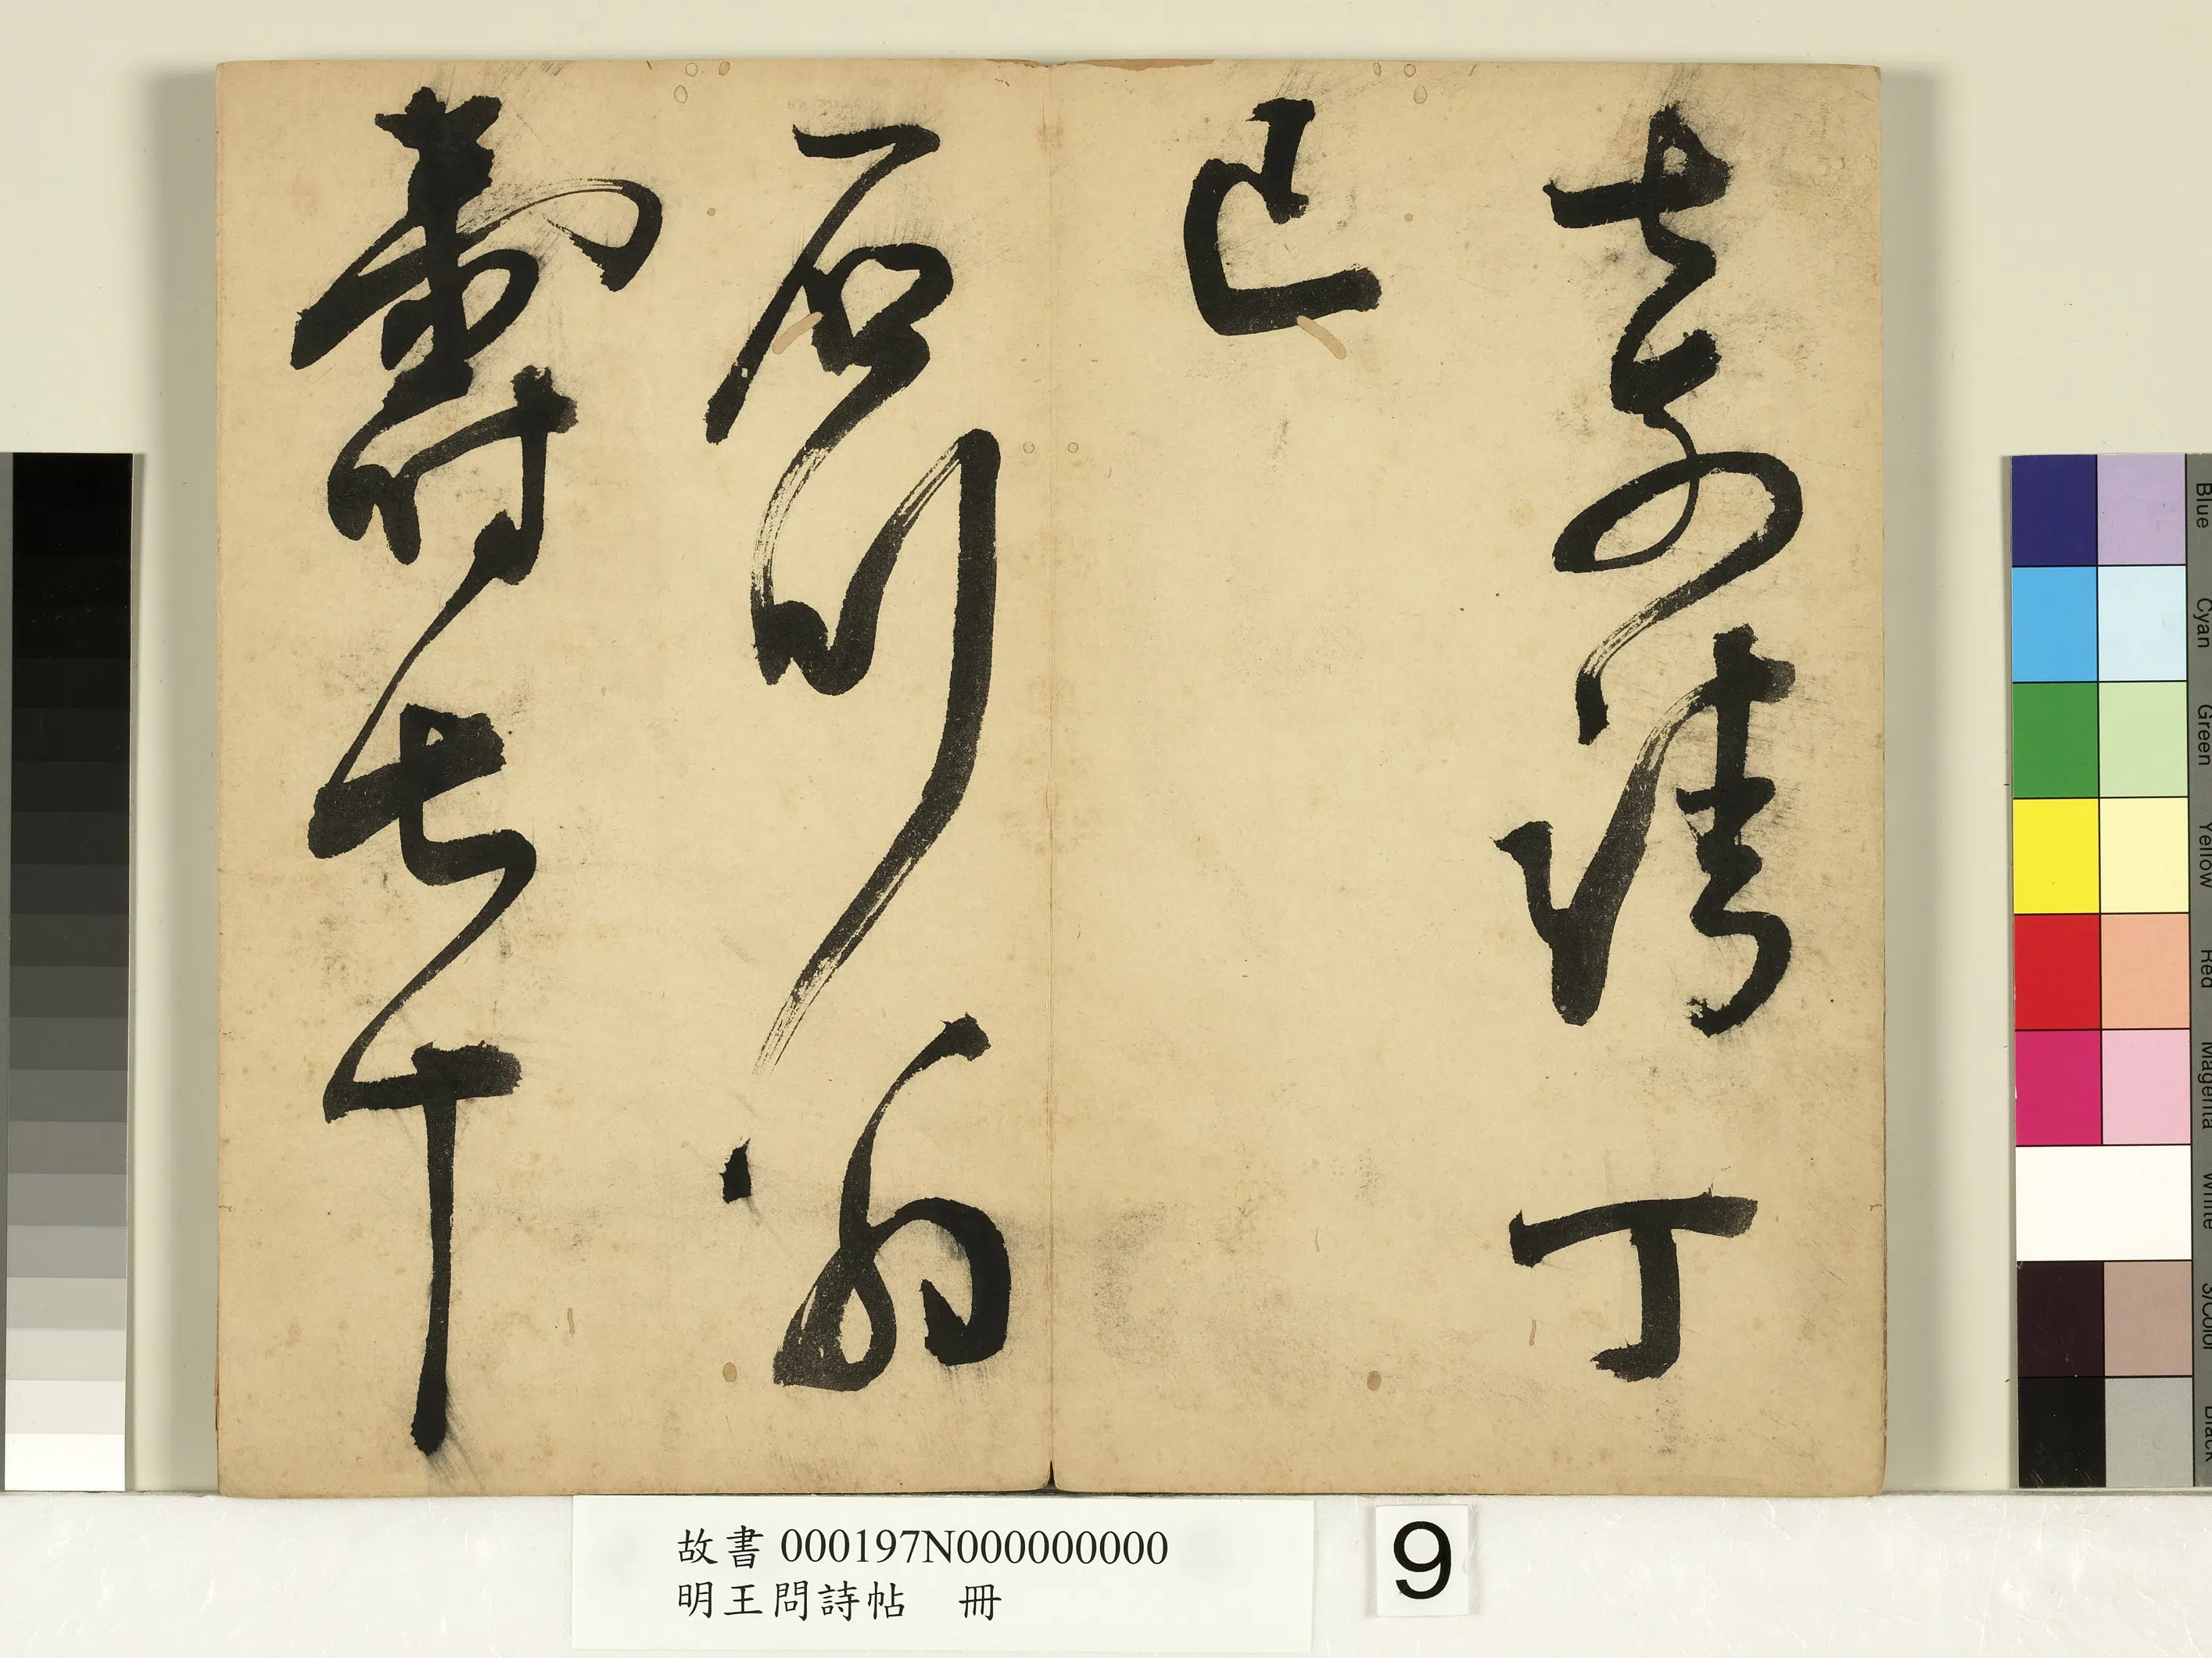 嘉靖丁
巳
石川翁
壽七十
故書 000197N000000000
明王問詩帖　冊
9
Blue
Cyan
Green
Yellow
Red
Magenta
White
3/Color
Black